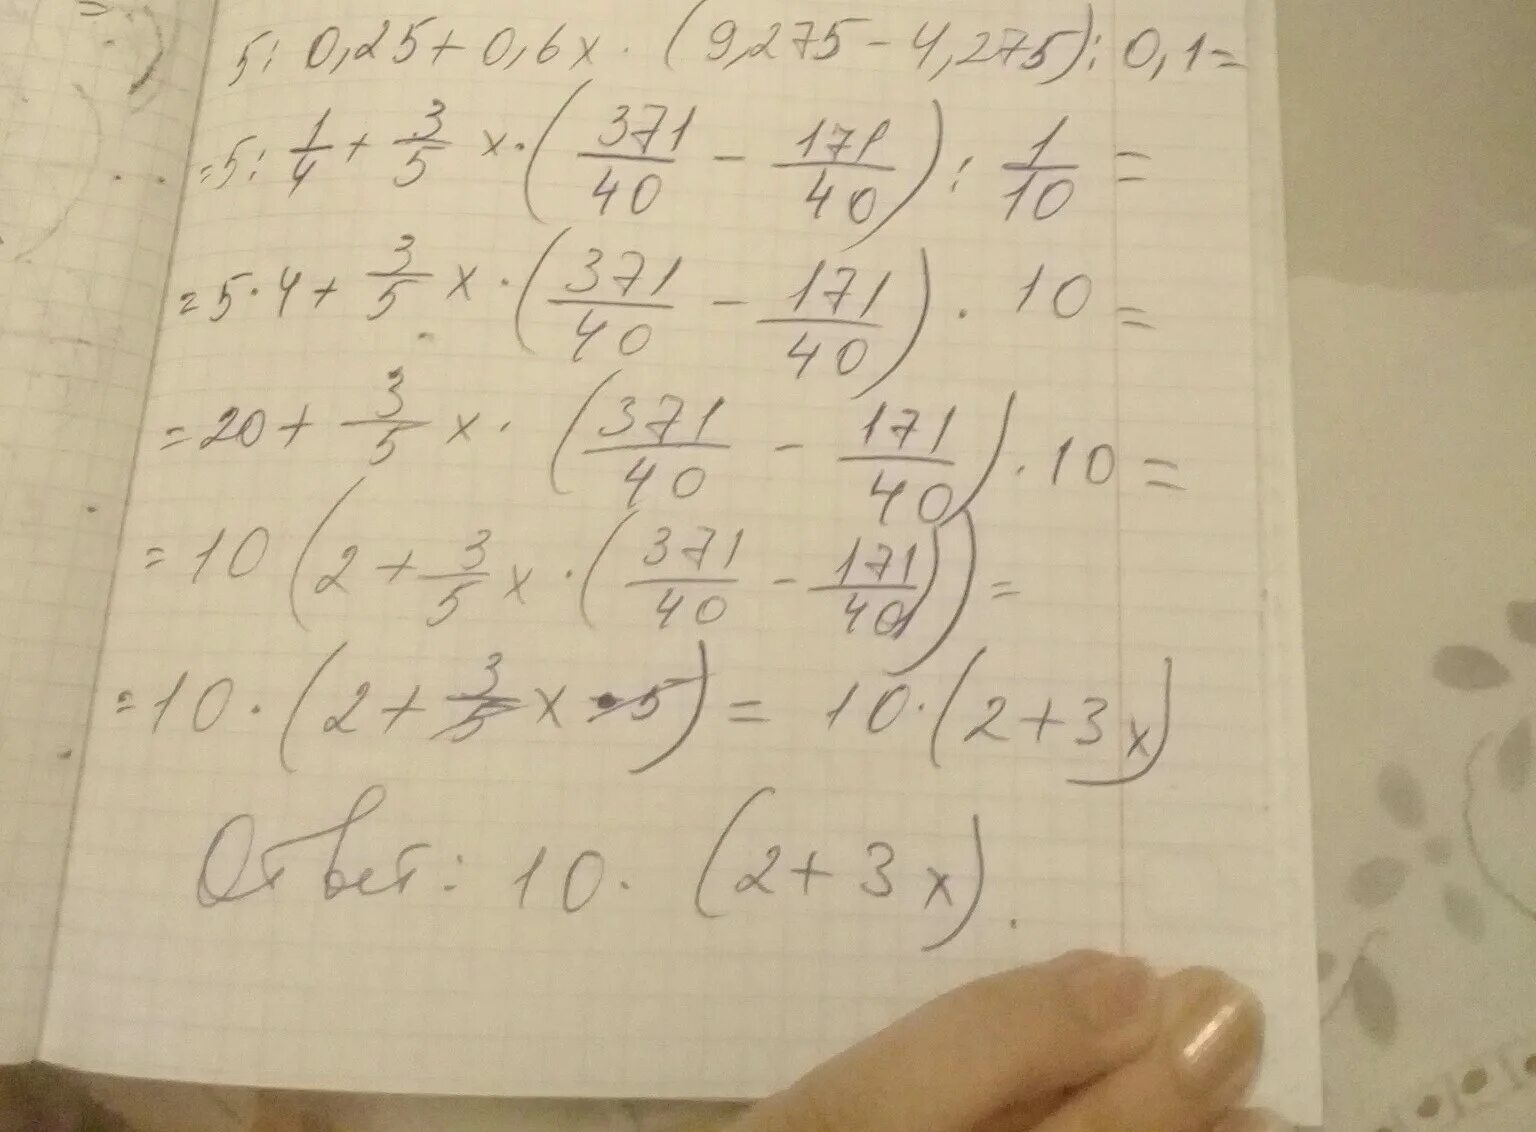 5 : 0,25 + 0,6x · (9,275 - 4,275) : 0,1 =
= 5 : 1/4 + 3/5 x · (371/40 - 171/40) : 1/10 =
= 5 · 4 + 3/5 x · (371/40 - 171/40) · 10 =
= 20 + 3/5 x · (371/40 - 171/40) · 10 =
= 10 (2 + 3/5 x · (371/40 - 171/40)) =
= 10 · (2 + 3/5 x · 5) = 10 · (2 + 3x)
Ответ: 10 · (2 + 3x).